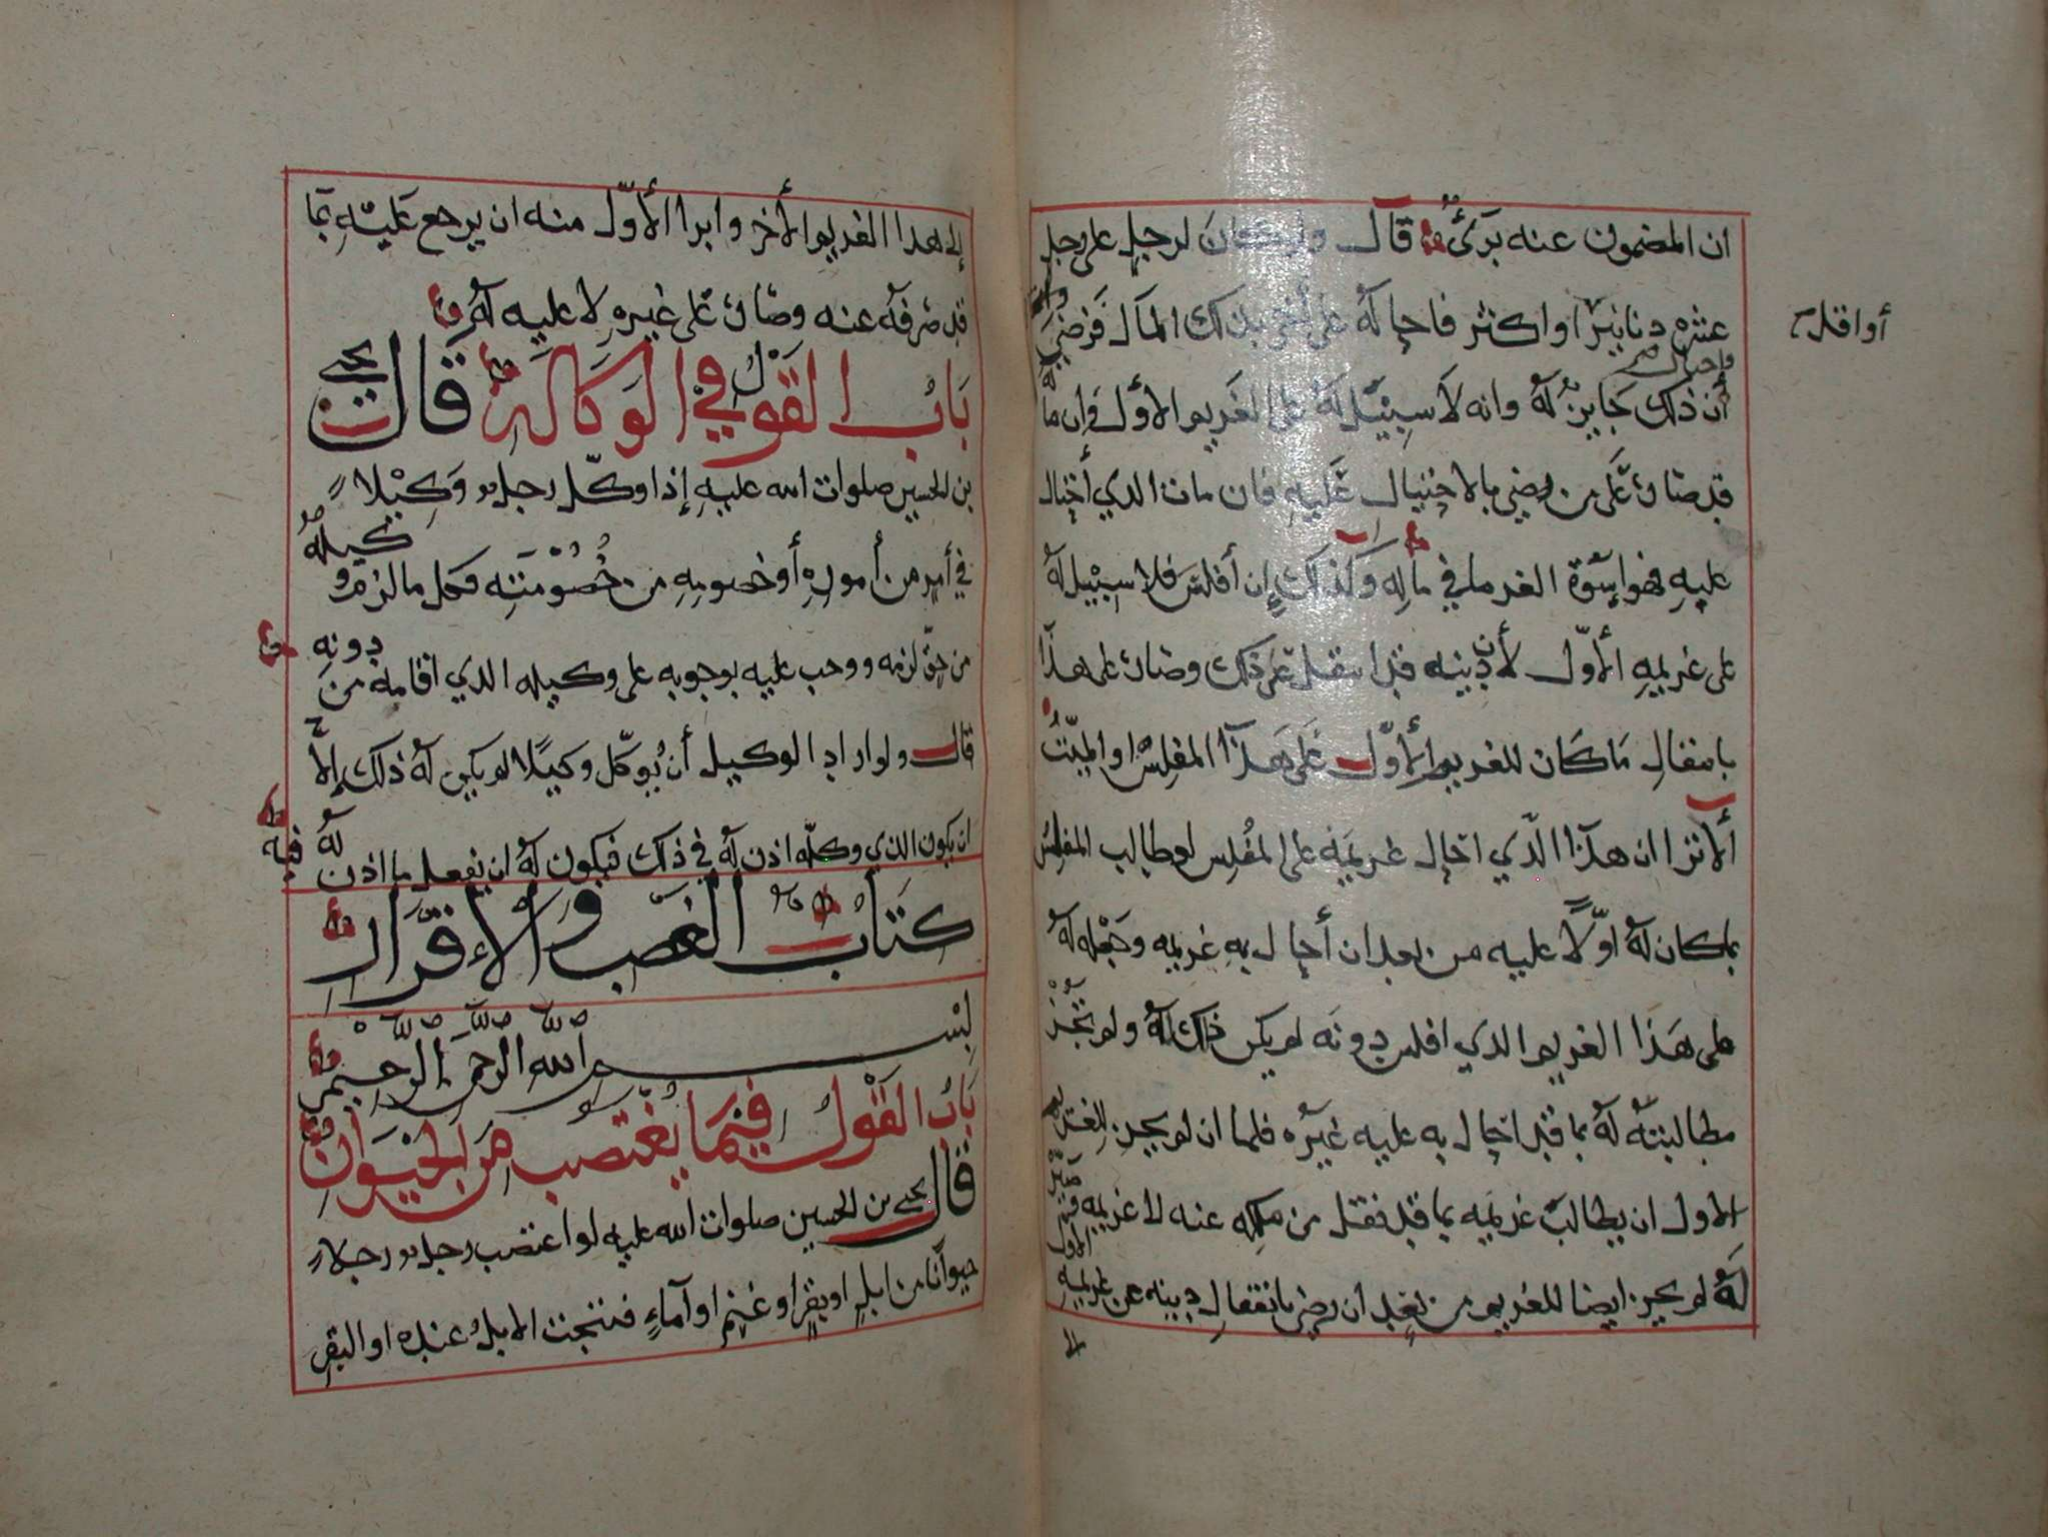 ان المضمون عنه بريٌ قال ولو كان لرجل على رجل
عشره دنانير او اكثر فاحاله على أخر بذلك المال فرضي واحتال
أو اقل
أن ذلك جايز له وانه لا سبيل له على الغريم الاول وان ماله
قد صار على من رضي بالاحتيال عليه فان مات الذي أحتال
عليه فهو إسوة الغرما في ماله وكذلك إن أفلس فلا سبيل له
على غريمه الأول لأن دينه قد انتقل عن ذلك وصار على هذا
بانتقال ما كان للغريم الأول على هذا المفلس او الميت
ألا ترا ان هذا الذي احال غريمه على المفلس لو طالب المفلس
بما كان له اوّلاً عليه من بعد ان أحال به غريمه وجعله له
على هذا الغريم الذي افلس دونه لم يكن ذلك له ولم تجز
مطالبته له بما قد احال به عليه غيره فلما ان لم يجز للغريم
الاول ان يطالب غريمه بما قد نقل من ملكه عنه لا غريمه فيه
له لم يجز ايضا للغريم من بعد ان رضي بانتقال دينه عن غريمه الاول
الى هذا الغريم الأخر وابرا الأوّل منه ان يرجع عليه بما
قد صرفه عنه وصار على غيره لا عليه له
باب القول في الوكالة قال يحيى
بن الحسين صلوات الله عليه إذا وكّل رجل وكيلا
في أمر من أموره أو خصومه من خصومته فكل ما لزم وكيله
من حق لزمه ووجب عليه بوجوبه على وكيله الذي اقامه من دونه
قال ولو اراد الوكيل أن يوكّل وكيلًا لم يكن له ذلك إلا
ان يكون الذي وكله اذن له في ذلك فيكون له ان يفعل ما اذن له فيه
كتاب الغصب والإقرار
بسم الله الرحمن الرحيم
باب القول فيما يغتصب من الحيوان
قال يحيى بن الحسين صلوات الله عليه لو اغتصب رجل رجلا
حيوانا من ابل او بقر او غنم او آماء فنتجت الابل عنده او البقر